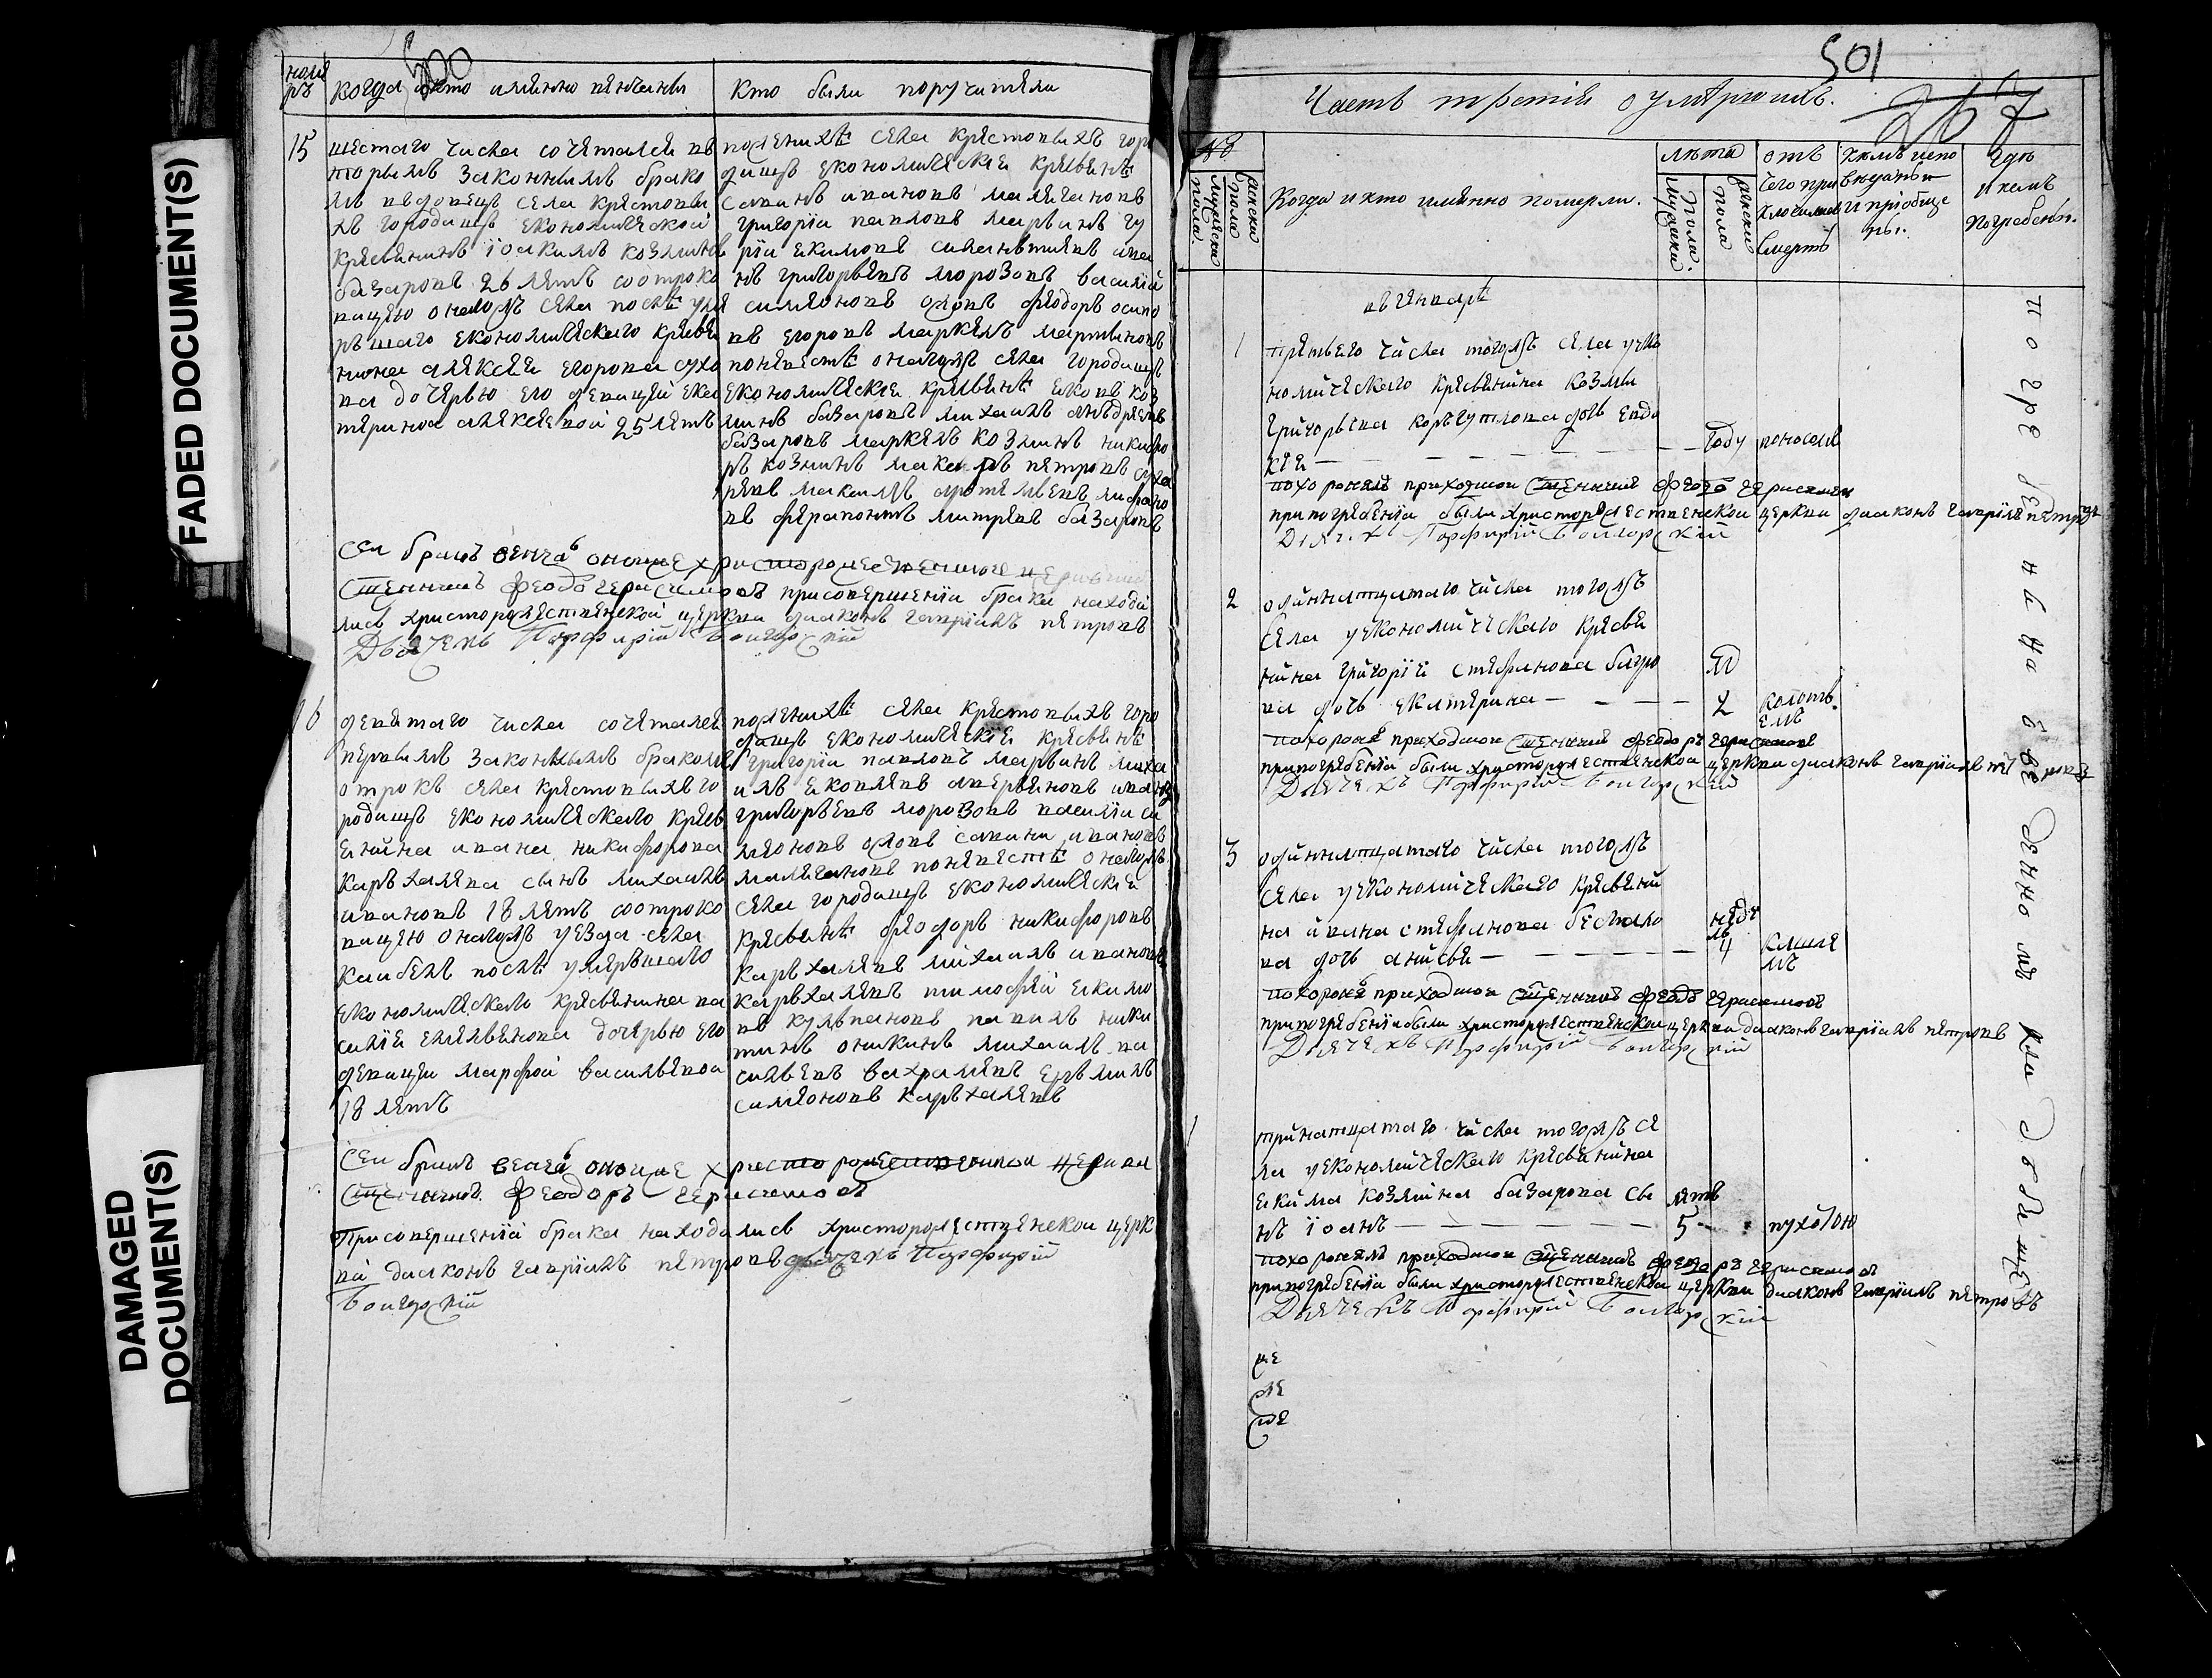 FADED DOCUMENT(S)
DAMAGED
DOCUMENT(S)
500
номѣ
ръ
когда и кто имянно венчаны
кто были поручители
15
шестаго числа сочетался в
торымъ законнымъ брако
мъ вдовецъ села крестовы
хъ городищъ економической
кресьянинъ іоакимъ козминъ
базаровъ 26 летъ сотроко
вицею онагожъ села послѣ уме
ръшаго економическаго кресья
нина алексея егорова сухо
ва дочерью его девицей ека
териной алексевой 25 летъ
поженихѣ села крестовыхъ горо
дищъ економическіе кресьянѣ
савинъ ивановъ малягановъ
григорія павловъ марьинъ гу
рія екимовъ силантиевъ ива
нъ григорьевъ морозовъ василій
симионовъ ожовъ феодоръ осипо
въ егоровъ маркелъ мартиновъ
поневестѣ онагожъ села городищъ
економическіе кресьянѣ яковъ коз
минъ базаровъ михаилъ анъдреевъ
базаровъ маркелъ козминъ никифо
ръ козминъ макаръ петровъ суха
ревъ максимъ артемьевъ
въ ферапонтъ митревъ базаровъ
Сеи бракъ венчалъ оноиже христорождественской церкви
священникъ феодоръ герасимовъ присовершеніи брака находи
лись христорождественской церкви диаконъ гавріилъ петровъ
Дьячекъ Порфирій
16
девятаго числа сочетался
первымъ законнымъ бракомъ
отрокъ села крестовыхъ го
родищъ економическаго кресь
янина ивана никифорова
каръхалева сынъ михаилъ
ивановъ 18 летъ сотроко
вицею онагожъ уезда села
каибелъ послѣ умершаго
економическаго кресьянина ва
силія емельянова дочерью его
девицеи марфой васильевои
18 летъ
поженихѣ села крестовыхъ горо
дищъ економическіе кресьянѣ
григорія павловъ марьинъ миха
илъ яковлевъ аверьяновъ иванъ
григорьевъ морозовъ василіи си
мионовъ ожовъ савинъ ивановъ
малягановъ поневестѣ онагожъ
села городищъ економическіе
кресьянѣ феодоръ никифоровъ
каръхалевъ михаилъ ивановъ
каръхалевъ тимофѣй екимо
въ кульпановъ павилъ ники
тинъ оникинъ михаилъ ва
сильевъ вахрамевъ еръмилъ
симионовъ каръхалевъ
Сеи бракъ венчалъ оноиже христорождественской церкви
священникъ феодоръ герасимовъ
Присовершеніи брака находились христорождественской церк
ви диаконъ гавріилъ петровъ дьячекъ Порфирій
501
Часть третія о умершихъ.
267
№
мужеска
пола.
женска
пола
Когда и кто имянно померли.
лета
мужеска
пола.
женска
пола
отъ
чего при
ключилась
смерть
кемъ испо
ведываны
и пріобще
ны.
Где
и кемъ
погребены.
въ генварѣ
1
третьего числа тогожъ села уеко
номическаго кресьянина козмы
григорьева коръчутлова дочь евдо
кѣя
году
поносомъ
похоронялъ приходской священникъ феодоръ герасимовъ
припогребеніи были христорождественской церкви диаконъ гавріилъ петровъ
Дьячекъ Порфирій
2
одиннатцатаго числа тогожъ
села уекономическаго кресья
нина григоріи стефанова
ва дочь екатерина
2
колоть
емъ
похоронялъ приходской священникъ феодоръ герасимовъ
припогребеніи были христорождественской церкви диаконъ гавріилъ петровъ
Дьячекъ Порфирій
3
одиннатцатаго числа тогожъ
села уекономическаго кресьяни
на ивана стефанова беспало
ва дочь анисья
недѣ
ль
4
кашле
мъ
похоронялъ приходской священникъ феодоръ герасимовъ
припогребеніи были христорождественской церкви диаконъ гавріилъ петровъ
Дьячекъ Порфирій
1
тринатцатаго числа тогожъ се
ла уекономическаго кресьянина
екима козмина базарова сы
нъ іоанъ
летъ
5
пухотою
похоронялъ приходской священникъ феодоръ герасимовъ
припогребеніи были христорождественской церкви диаконъ гавріилъ петровъ
Дьячекъ Порфирій
погребены на отведенномъ кладбищѣ